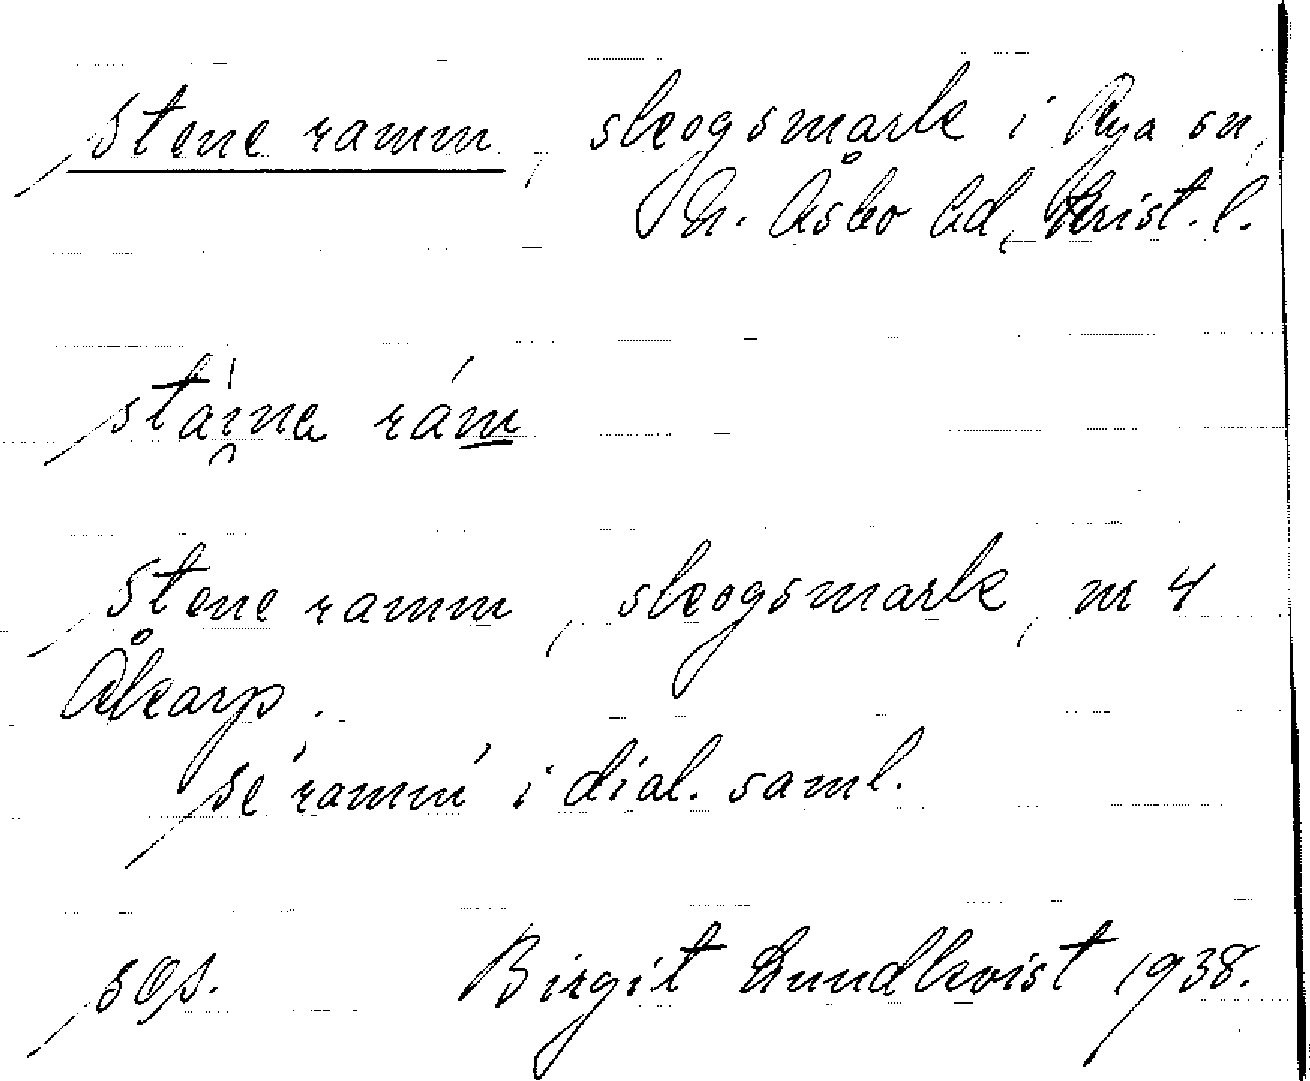 Stene ramm, skogsmark i Rya sn,
N. Åsbo hd, Krist. l.
stáina rám
Stene ramm, skogsmark, nr 4
Åkarp.
Se 'ramm' i dial. saml.
sgs.
Birgit Lundkvist 1938.